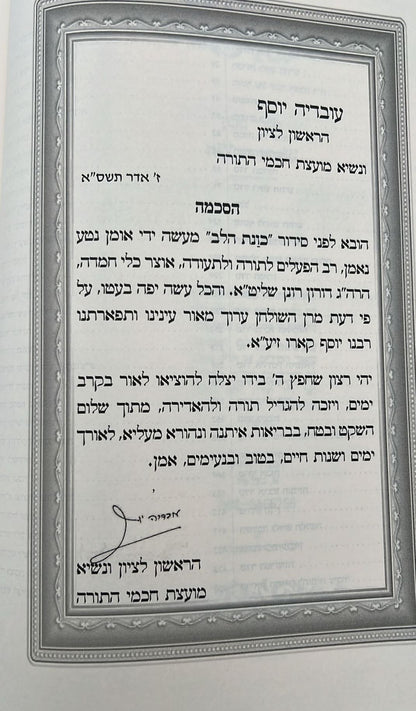 עובדיה יוסף
הראשון לציון
ונשיא מועצת חכמי התורה
ז׳ אדר תשס״א
הסכמה
הובא לפני סידור ״כוָנת הלב״ מעשה ידי אומן נטע
נאמן, רב הפעלים לתורה ולתעודה, אוצר כלי חמדה,
הרה״ג הורון רונן שליט״א. והכל עשה יפה בעטו, על
פי דעת מרן השולחן ערוך מאור עינינו ותפארתנו
רבנו יוסף קארו זיע״א.
יהי רצון שחפץ ה׳ בידו יצלח להוציאו לאור בקרב
ימים, ויזכה להגדיל תורה ולהאדירה, מתוך שלום
השקט ובטח, בבריאות איתנה ונהורא מעליא, לאורך
ימים ושנות חיים, בטוב ובנעימים, אמן.
הראשון לציון ונשיא
מועצת חכמי התורה